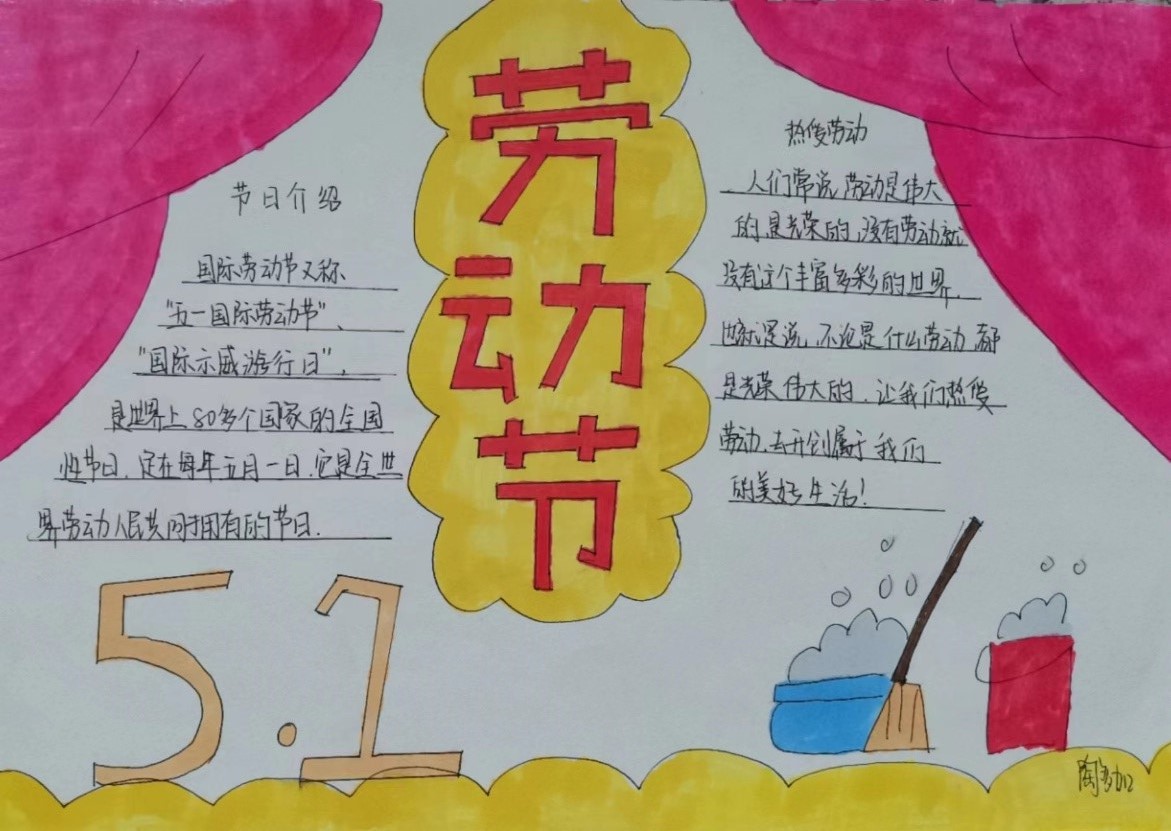 劳动节
节日介绍
国际劳动节又称
"五一国际劳动节"、
"国际示威游行日",
是世界上80多个国家的全国
性节日.定在每年五月一日.它是全世
界劳动人民共同拥有的节日.
5.1
热爱劳动
人们常说,劳动是伟大
的,是光荣的,没有劳动就
没有这个丰富多彩的世界.
也就是说,不论是什么劳动,都
是光荣伟大的.让我们热爱
劳动,去开创属于我们
的美好生活!
陶